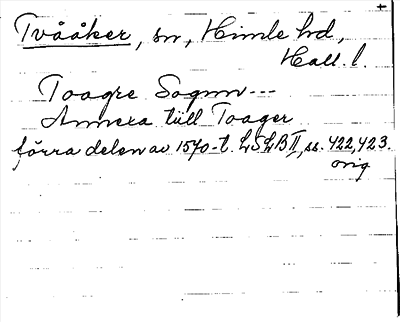 +
Tvååker, sn, Himle hd,
Hall. l.
Toagre Sognn---
Annexa till Toager
förra delen av 1570-t. LSLB II, ss. 422, 423.
orig